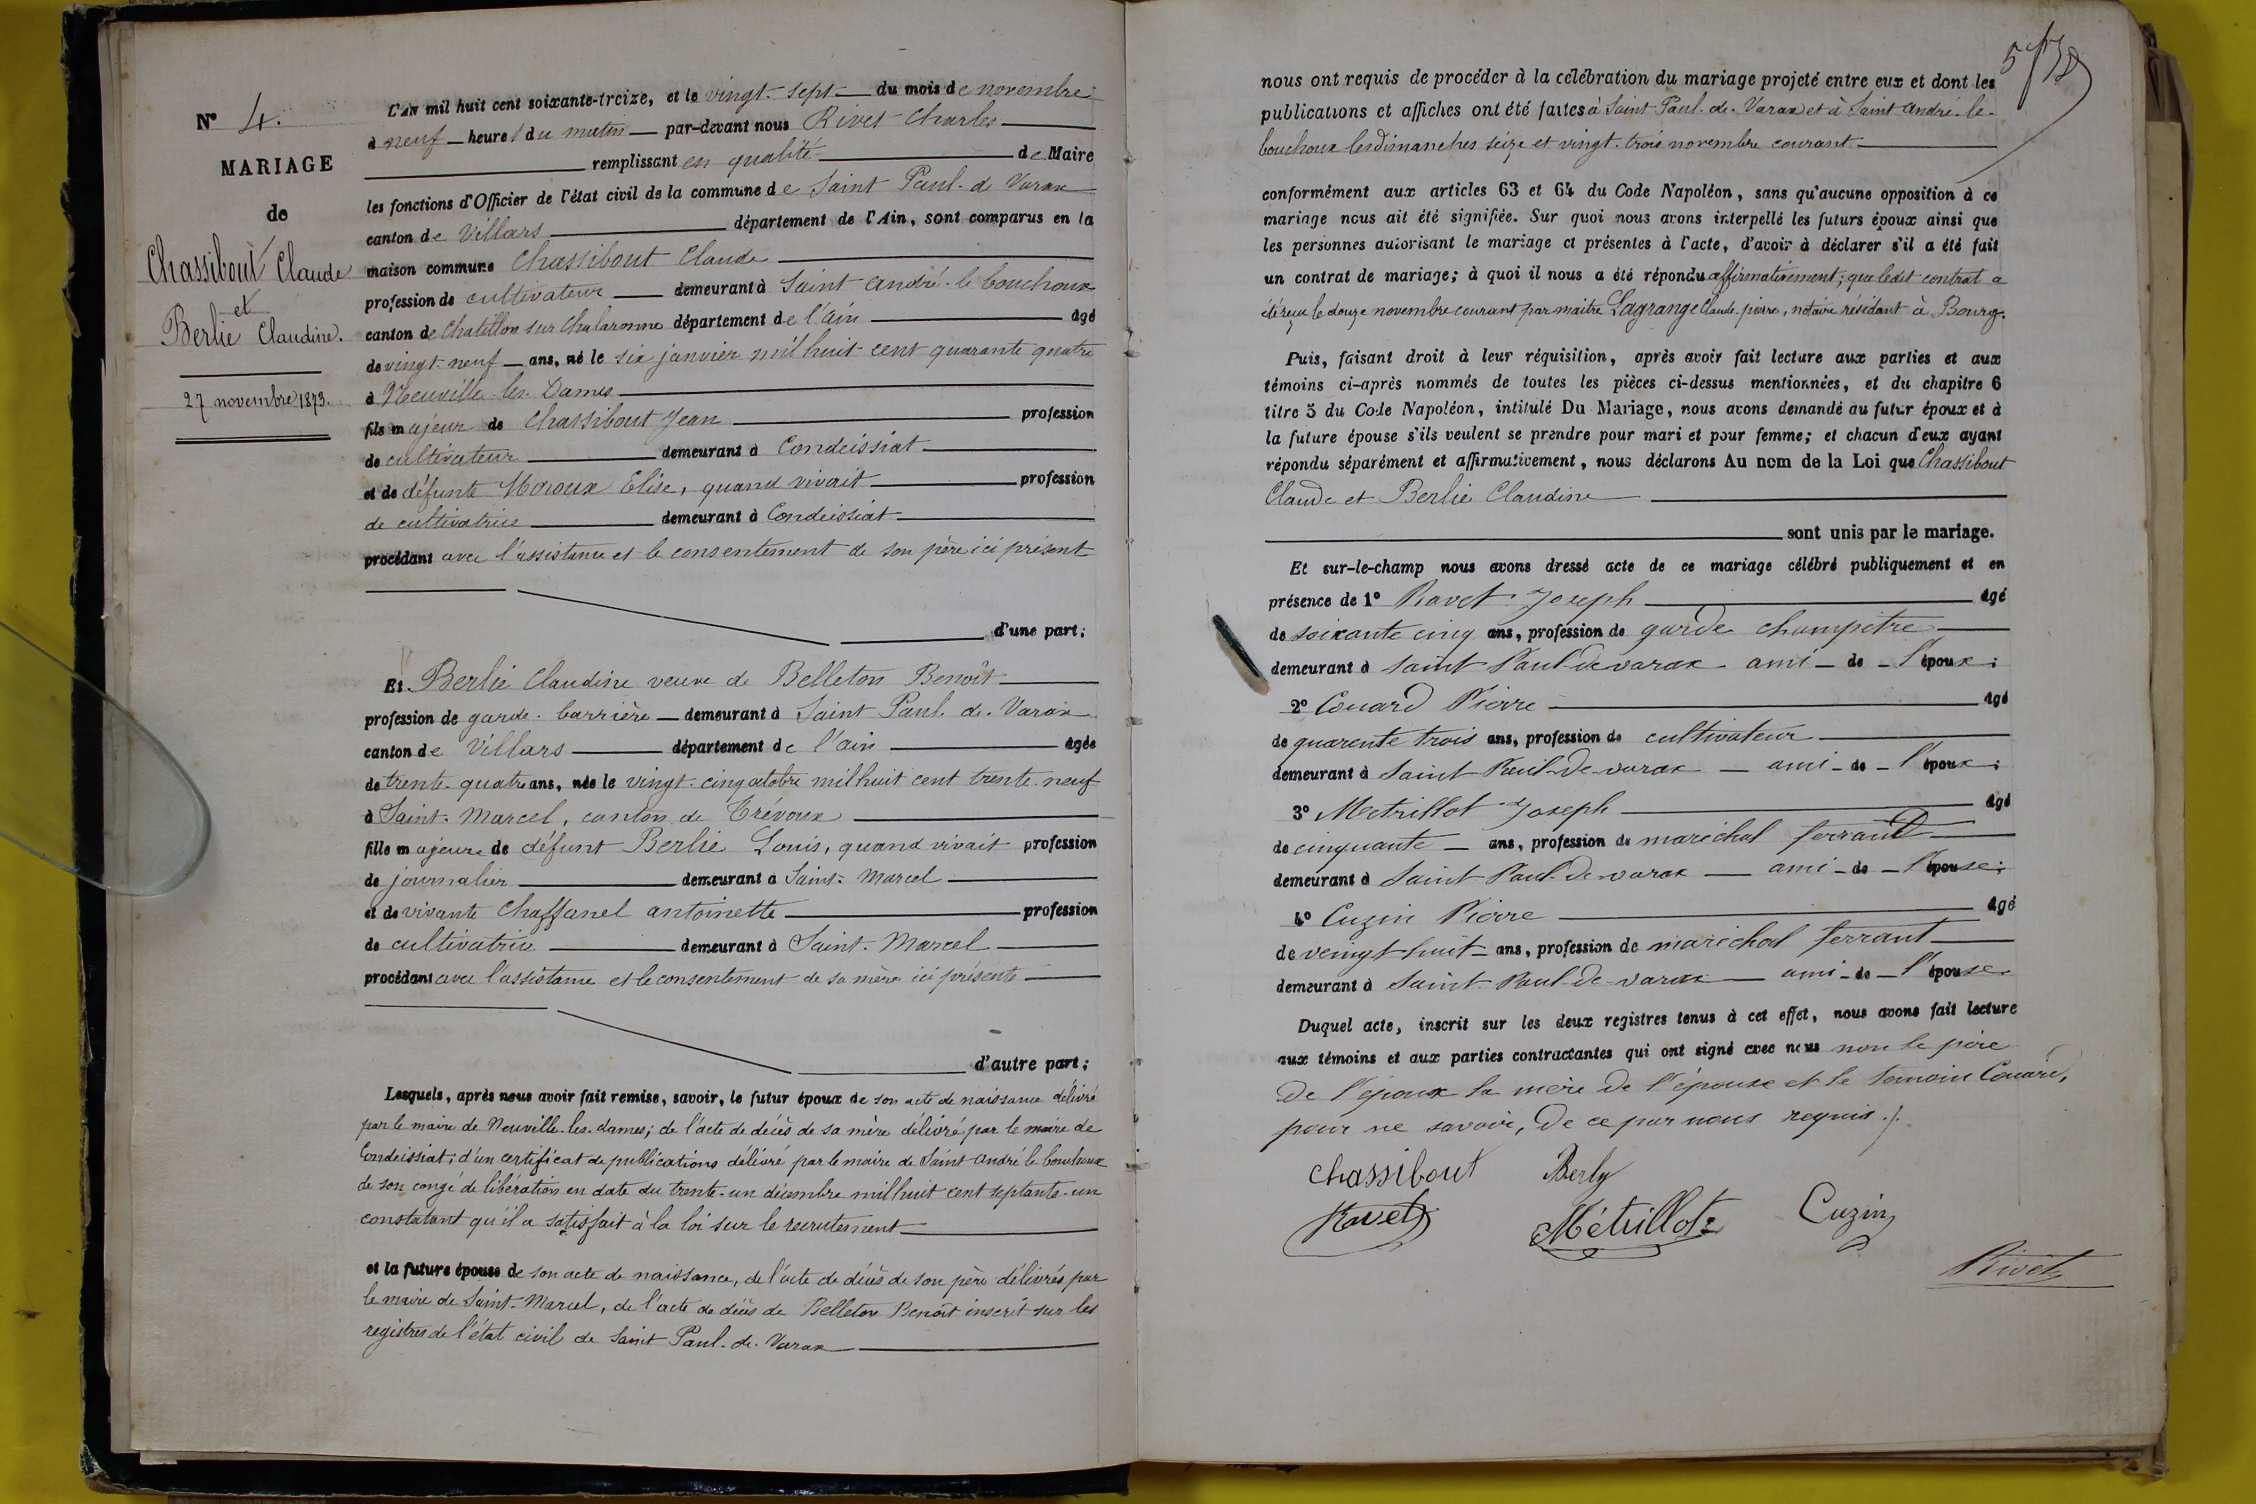 N° 4.
MARIAGE
de
Chassibout Claude
et
Berlie Claudine.
27 novembre 1873.
L'An mil huit cent soixante-treize, et le vingt-sept du mois de novembre
à neuf heures du matin par-devant nous Rivet Charles
remplissant en qualité de Maire
les fonctions d'Officier de l'état civil de la commune de Saint Paul-de-Varax
canton de Villars département de l'Ain, sont comparus en la
maison commune Chassibout Claude
profession de cultivateur demeurant à Saint André-le bouchoux
canton de Chatillon sur Chalaronne département de l'ain âgé
de vingt-neuf ans, né le six janvier mil huit cent quarante quatre
à Neuville-les-Dames
fils majeur de Chassibout Jean profession
de cultivateur demeurant à Condeissiat
et de défunte Moroux Elise, quand vivait profession
de cultivatrice demeurant à Condeissiat
procédant avec l'assistance et le consentement de son père ici présent
d'une part;
Et Berlie Claudine veuve de Belleton Benoît
profession de garde-barrière demeurant à Saint Paul-de-Varax
canton de Villars département de l'ain âgée
de trente-quatre ans, née le vingt-cinq octobre mil huit cent trente-neuf
à Saint-Marcel, canton de Trévoux
fille majeure de défunt Berlie Louis, quand vivait profession
de journalier demeurant à Saint-Marcel
et de vivante Chaffanel antoinette profession
de cultivatrice demeurant à Saint-Marcel
procédant avec l'assistance et le consentement de sa mère ici présente
d'autre part;
Lesquels, après nous avoir fait remise, savoir, le futur époux de son acte de naissance délivré
par le maire de Neuville-les-dames; de l'acte de décès de sa mère délivré par le maire de
Condeissiat; d'un certificat de publications délivré par le maire de Saint André le bouchoux
de son congé de libération en date du trente-un décembre mil huit cent septante-un
constatant qu'il a satisfait à la loi sur le recrutement
et la future épouse de son acte de naissance, de l'acte de décès de son père délivrés par
le maire de Saint-Marcel, de l'acte de décès de Belleton Benoît inscrit sur les
registres de l'état civil de Saint Paul-de-Varax
nous ont requis de procéder à la célébration du mariage projeté entre eux et dont les
publications et affiches ont été faites à Saint-Paul-de-Varax et à Saint-André-le-
bouchoux les dimanches seize et vingt-trois novembre courant
conformément aux articles 63 et 64 du Code Napoléon, sans qu'aucune opposition à ce
mariage nous ait été signifiée. Sur quoi nous avons interpellé les futurs époux ainsi que
les personnes autorisant le mariage et présentes à l'acte, d'avoir à déclarer s'il a été fait
un contrat de mariage; à quoi il nous a été répondu affirmativement; que ledit contrat a
été reçu le douze novembre courant par maître Lagrange Claude-pierre, notaire résidant à Bourg.
Puis, faisant droit à leur réquisition, après avoir fait lecture aux parties et aux
témoins ci-après nommés de toutes les pièces ci-dessus mentionnées, et du chapitre 6
titre 5 du Code Napoléon, intitulé Du Mariage, nous avons demandé au futur époux et à
la future épouse s'ils veulent se prendre pour mari et pour femme; et chacun d'eux ayant
répondu séparément et affirmativement, nous déclarons Au nom de la Loi que Chassibout
Claude et Berlie Claudine
sont unis par le mariage.
Et sur-le-champ nous avons dressé acte de ce mariage célébré publiquement et en
présence de 1° Ravet Joseph âgé
de soixante cinq ans, profession de garde champêtre
demeurant à Saint Paul-de varax ami de l'époux;
2° Couard Pierre âgé
de quarente trois ans, profession de cultivateur
demeurant à Saint Paul-de-varax ami de l'époux;
3° Metrillot Joseph âgé
de cinquante ans, profession de maréchal ferrant
demeurant à Saint Paul-de-varax ami de l'épouse;
4° Cuzin Pierre âgé
de veingt huit ans, profession de maréchal ferrant
demeurant à Saint Paul-de-varax ami de l'épouse.
Duquel acte, inscrit sur les deux registres tenus à cet effet, nous avons fait lecture
aux témoins et aux parties contractantes qui ont signé avec nous non le père
de l'époux la mère de l'épouse et le temoin Couard,
pour ne savoir, de ce par nous requis ./.
Chassibout Berly
Ravet Métrillot Cuzin
Rivet